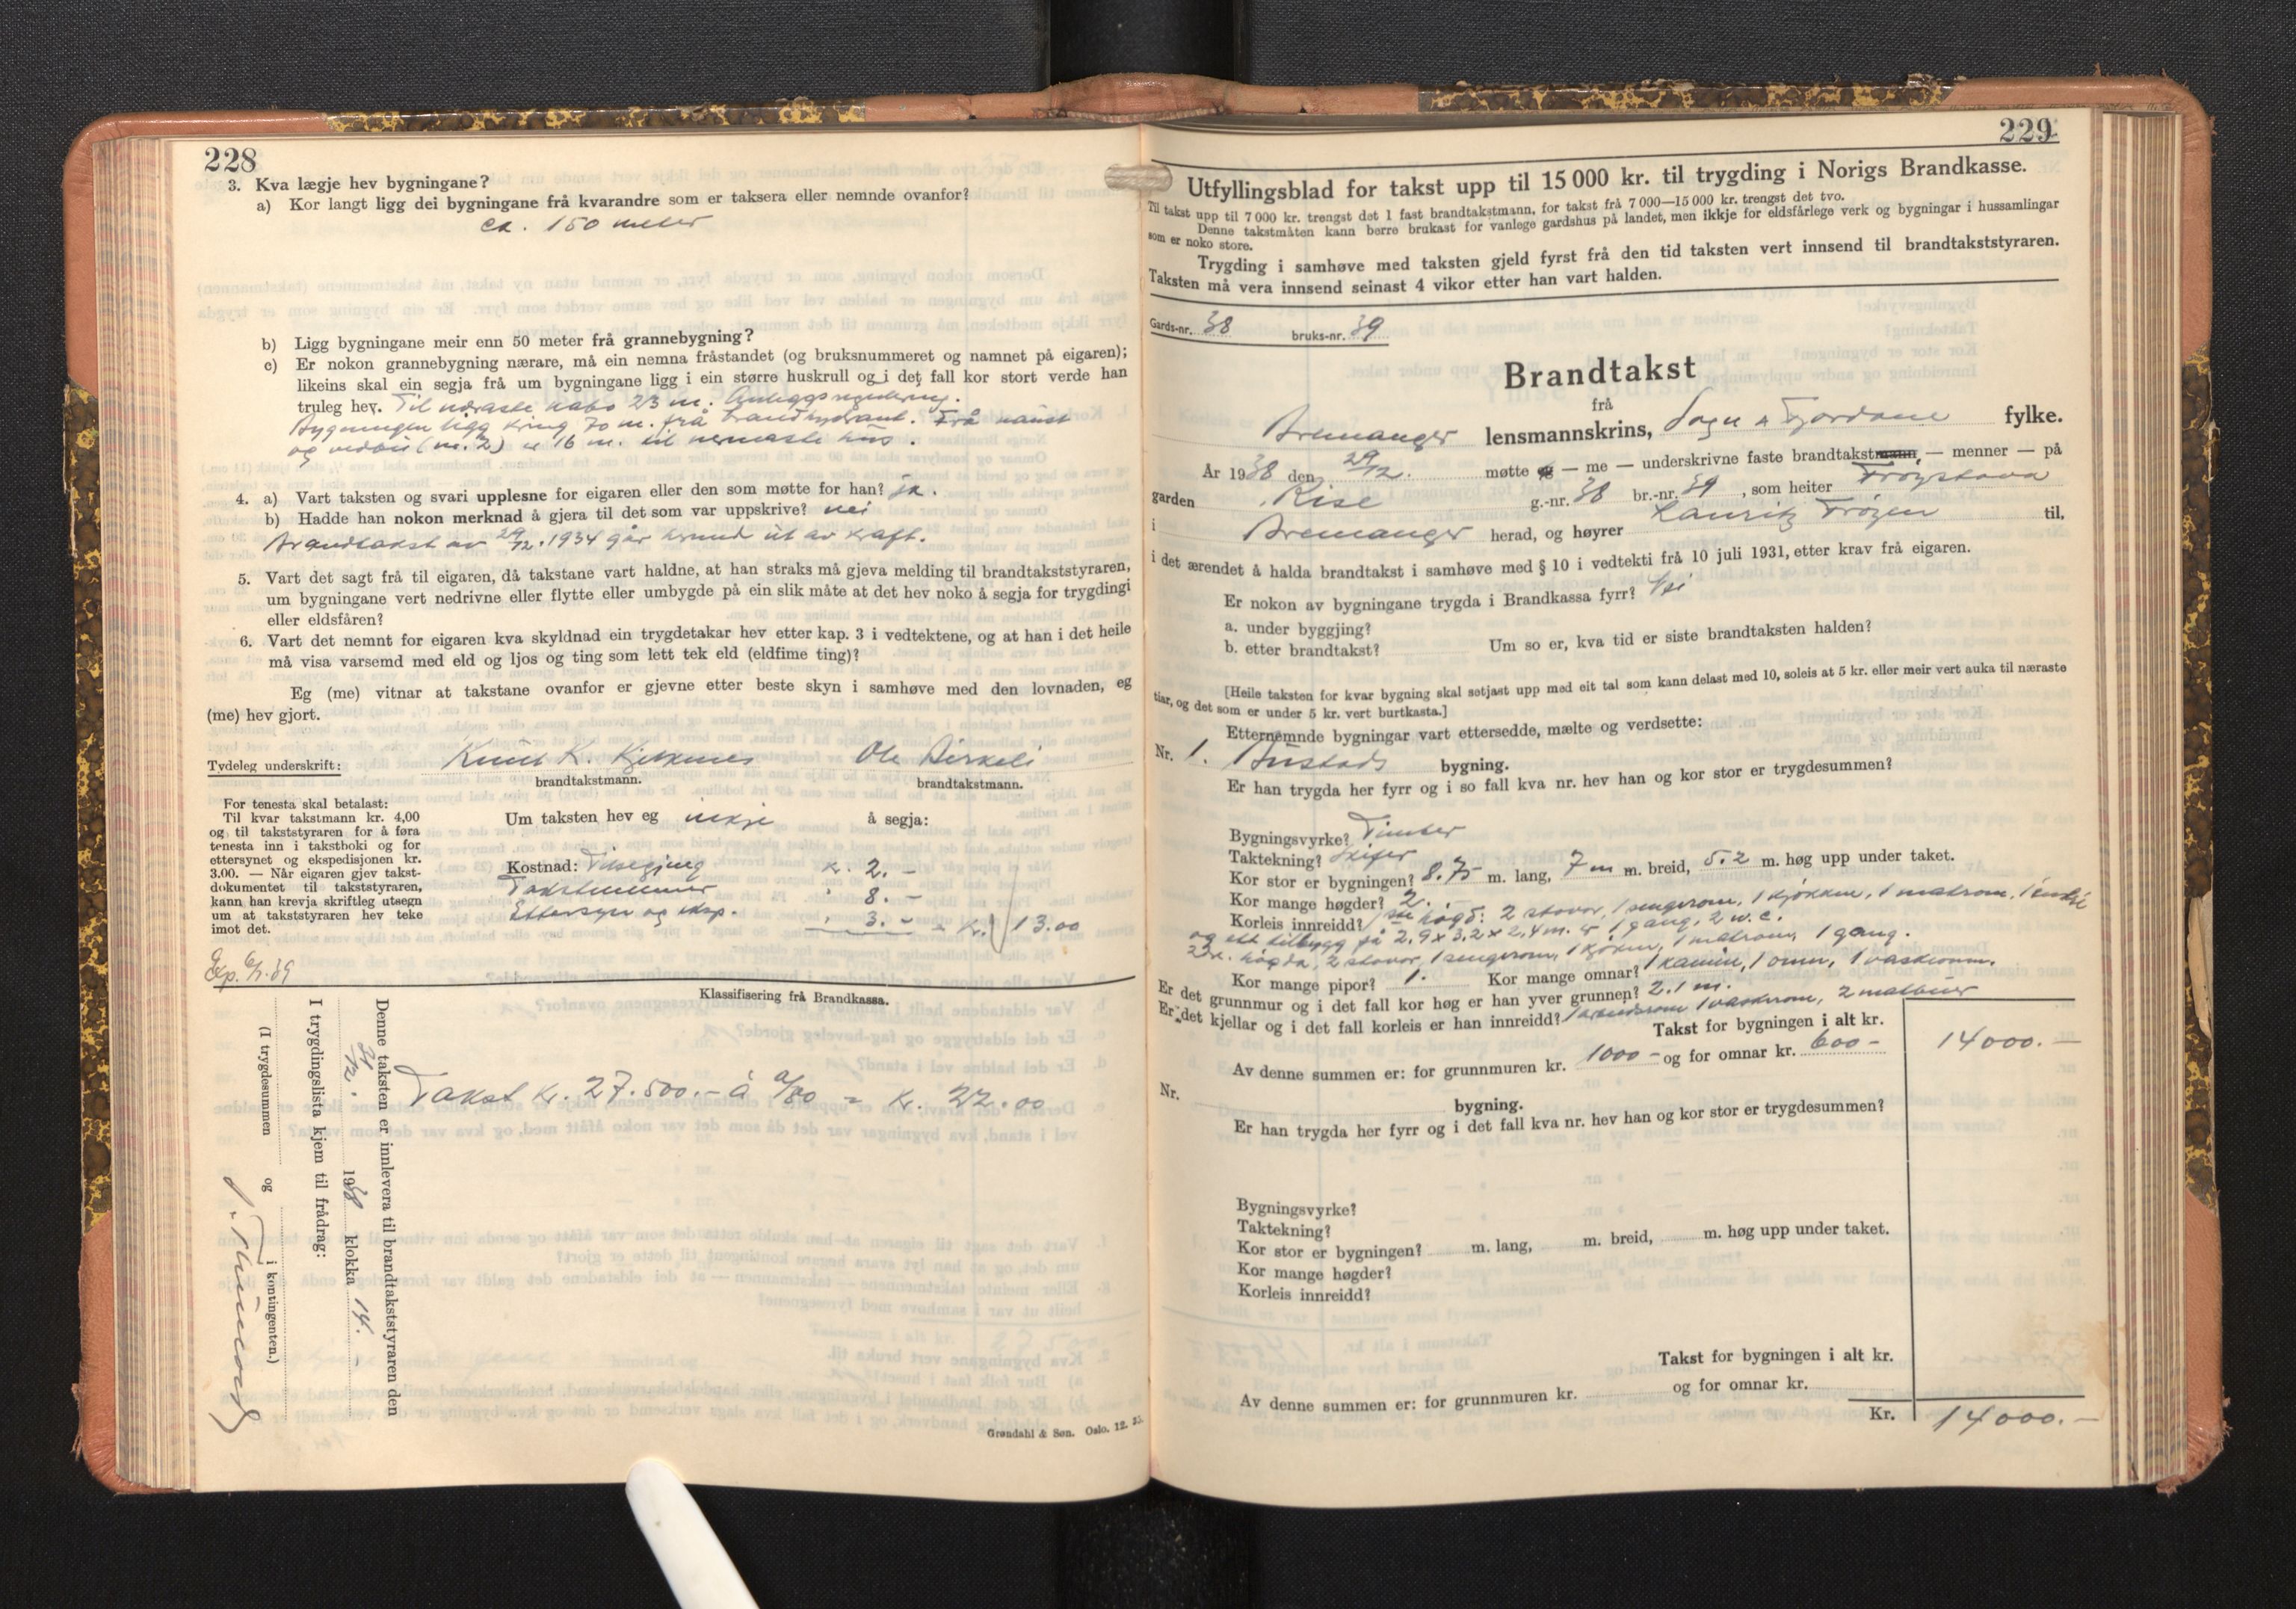 228
3. Kva lægje hev bygningane?
a) Kor langt ligg dei bygningane frå kvarandre som er taksera eller nemnde ovanfor?
ca. 150 meter
b) Ligg bygningane meir enn 50 meter frå grannebygning?
c) Er nokon grannebygning nærare, må ein nemna fråstandet (og bruksnummeret og namnet på eigaren);
likeins skal ein segja frå um bygningane ligg i ein større huskrull og i det fall kor stort verde han
truleg hev. Til næraste nabo 23 m. Anleggsregulering.
Bygningen ligg kring 70 m. frå brandhydrant. Frå naust
og vedbu (nr. 2) er 16 m. til nermaste hus.
4. a) Vart taksten og svari upplesne for eigaren eller den som møtte for han? ja.
b) Hadde han nokon merknad å gjera til det som var uppskrive? nei
Brandtakst av 29/12. 1934 går hermed ut av kraft.
5. Vart det sagt frå til eigaren, då takstane vart haldne, at han straks må gjeva melding til brandtakststyraren,
um bygningane vert nedrivne eller flytte eller umbygde på ein slik måte at det hev noko å segja for trygdingi
eller eldsfåren?
6. Vart det nemnt for eigaren kva skyldnad ein trygdetakar hev etter kap. 3 i vedtektene, og at han i det heile
må visa varsemd med eld og ljos og ting som lett tek eld (eldfime ting)?
Eg (me) vitnar at takstane ovanfor er gjevne etter beste skyn i samhøve med den lovnaden, eg
(me) hev gjort.
Tydeleg underskrift: Knut K. Ole Birkeli
brandtakstmann. brandtakstmann.
For tenesta skal betalast:
Til kvar takstmann kr. 4,00
og til takststyraren for å føra
tenesta inn i takstboki og for
ettersynet og ekspedisjonen kr.
3.00. — Når eigaren gjev takst-
dokumentet til takststyraren,
kann han krevja skriftleg utsegn
um at takststyraren hev teke
imot det.
Um taksten hev eg inkje å segja:
Kostnad: Tilsegjing kr. 2.-
Takstmenner " 8.-
Ettersyn og eksp. " 3.- = kr. 13.00
Exp. 6/1.39
Klassifisering frå Brandkassa.
Takst kr. 27.500.- á a/80 = kr. 22.00
Denne taksten er innlevera til brandtakststyraren den
31/12. 1938 klokka 14.-
I trygdingslista kjem til frådrag:
(I trygdesummen og i kontingenten.)
Grøndahl & Søn. Oslo. 12. 35.
229
Utfyllingsblad for takst upp til 15 000 kr. til trygding i Norigs Brandkasse.
Til takst upp til 7 000 kr. trengst det 1 fast brandtakstmann, for takst frå 7 000—15 000 kr. trengst det tvo.
Denne takstmåten kann berre brukast for vanlege gardshus på landet, men ikkje for eldsfårlege verk og bygningar i hussamlingar
som er noko store.
Trygding i samhøve med taksten gjeld fyrst frå den tid taksten vert innsend til brandtakststyraren.
Taksten må vera innsend seinast 4 vikor etter han vart halden.
Gards-nr. 38 bruks-nr. 39
Brandtakst
frå
Bremanger lensmannskrins, Sogn & Fjordane fylke.
År 1938 den 29/12. møtte eg — me — underskrivne faste brandtakstmann, — menner — på
garden Rise g.-nr. 38 br.-nr. 39, som heiter Frøystova
i Bremanger herad, og høyrer Lauritz Frøyen til,
i det ærendet å halda brandtakst i samhøve med § 10 i vedtekti frå 10 juli 1931, etter krav frå eigaren.
Er nokon av bygningane trygda i Brandkassa fyrr? Nei
a. under byggjing?
b. etter brandtakst? Um so er, kva tid er siste brandtaksten halden?
[Heile taksten for kvar bygning skal setjast upp med eit tal som kann delast med 10, soleis at 5 kr. eller meir vert auka til næraste
tiar, og det som er under 5 kr. vert burtkasta.]
Etternemnde bygningar vart ettersedde, mælte og verdsette:
Nr. 1. Bustads bygning.
Er han trygda her fyrr og i so fall kva nr. hev han og kor stor er trygdesummen?
Bygningsvyrke? Timber
Taktekning? Skifer
Kor stor er bygningen? 8.75 m. lang, 7 m m. breid, 5.2 m. høg upp under taket.
Kor mange høgder? 2.
Korleis innreidd? 1ste høgd: 2 stovor, 1 sengerom, 1 kjøkken, 1 matrom,
og ett tilbygg på 2,9 x 3,2 x 2,4 m. er 1 gang, 2 w.c.
2dre. høgda, 2 stovor, 1 sengerom, 1 kjøken, 1 matrom, 1 gang.
Kor mange pipor? 1. Kor mange omnar? 1 kamin, 1 omn, 1 vaskeomn.
Er det grunnmur og i det fall kor høg er han yver grunnen? 2.1 m.
Er det kjellar og i det fall korleis er han innreidd? 1 arbeidsrom 1 vaskerom, 2 matbuer
Takst for bygningen i alt kr. 14000.—
Av denne summen er: for grunnmuren kr. 1000 - og for omnar kr. 600 -
Nr. bygning.
Er han trygda her fyrr og i det fall kva nr. hev han og kor stor er trygdesummen?
Bygningsvyrke?
Taktekning?
Kor stor er bygningen? m. lang, m. breid, m. høg upp under taket.
Kor mange høgder?
Korleis innreidd?
Takst for bygningen i alt kr.
Av denne summen er: for grunnmuren kr. og for omnar kr.
Kr. 14000.-